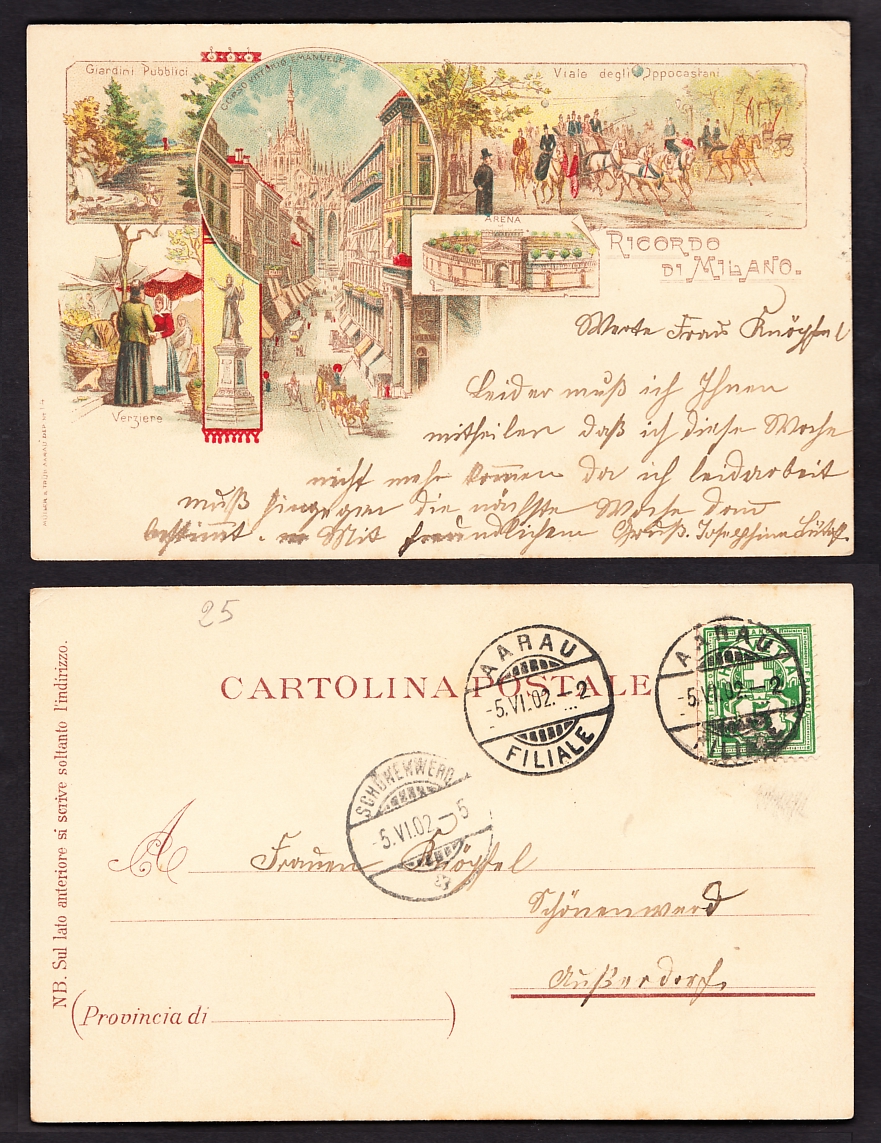 Giardini Pubblici
CORSO VITTORIO EMANUELE
Viale degli Ippocastani
ARENA
RICORDO
DI MILANO.
Verziere
Werte Frau Knöpfel
Leider muß ich Ihnen
mitheilen daß ich diese Woche
nicht mehr kommen da ich leidarbeit
muß hingegen die nächste Woche dann
bestimmt. Mit freundlichem Gruß. Josephina
25
CARTOLINA POSTALE
AARAU
-5.VI.02.-2
FILIALE
AARAU
-5.VI.02.-2
FILIALE
HELVETIA
SCHÖNENWERD
-5.VI.02-5
A Frauen Knöpfel
Schönenwerd
Außerdorf.
(Provincia di)
NB. Sul lato anteriore si scrive soltanto l'indirizzo.